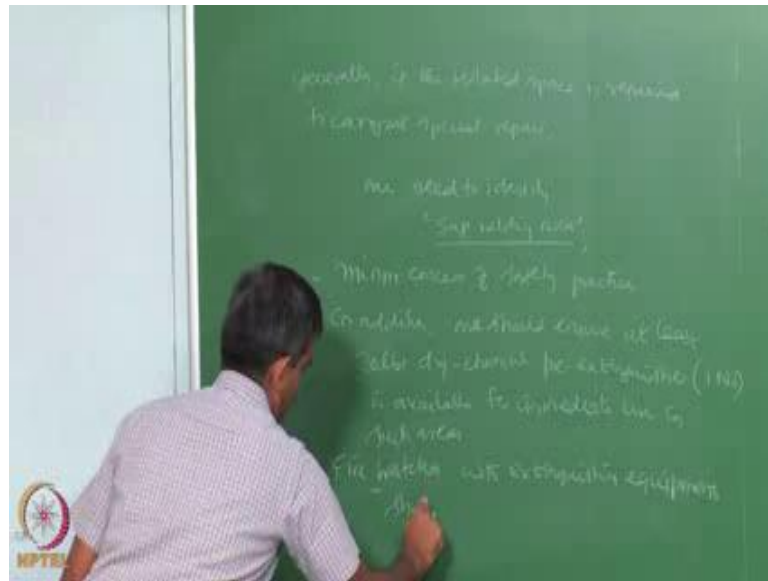 generally, if the isolated space is required
to carryout special repair
one need to identify
"Safe welding area"
- Minor concern of safety practice
In addition one should ensure at least
dry-chemical fire-extinguisher (1 No)
is available for immediate use in
such areas
Fire watcher with extinguishing equipments
NPTEL